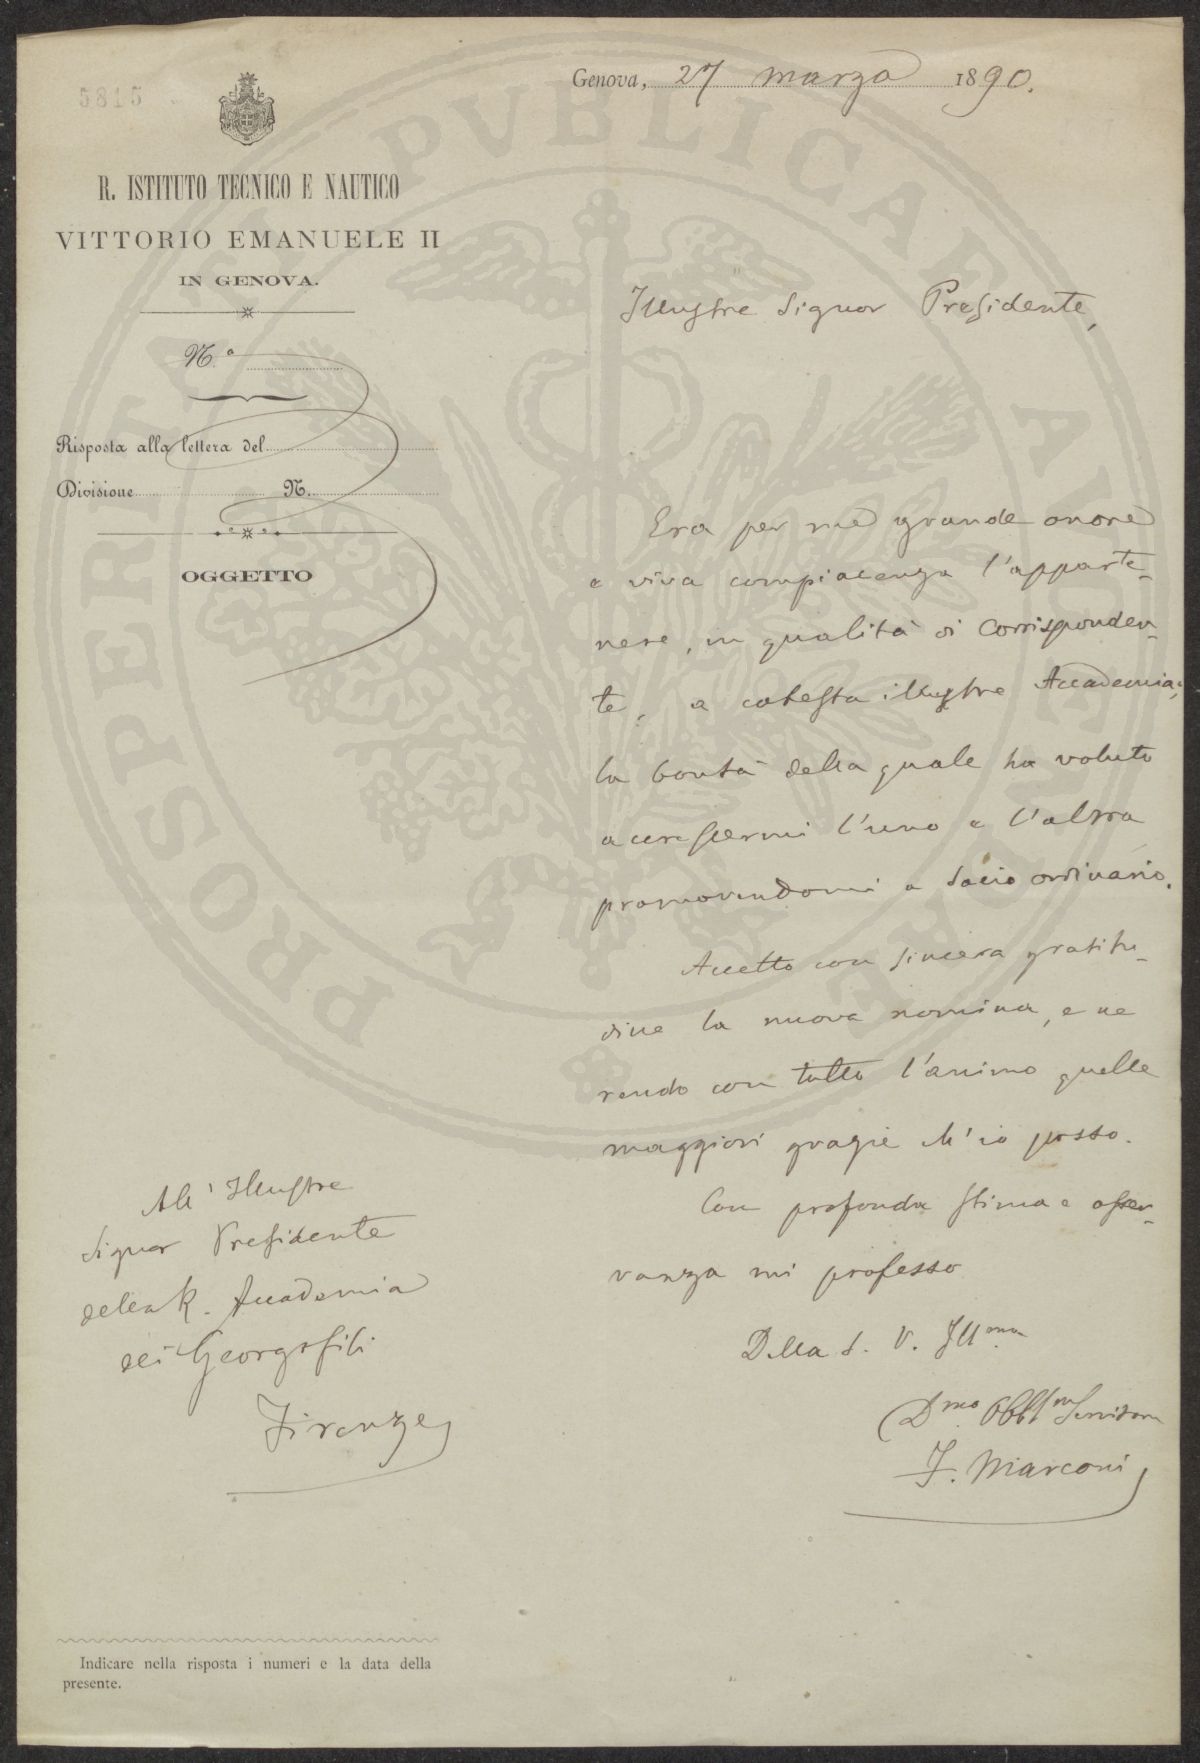 5815
Genova, 27 marzo 1890.
R. ISTITUTO TECNICO E NAUTICO
VITTORIO EMANUELE II
IN GENOVA.
N.°
Risposta alla lettera del
Divisione N.
OGGETTO
Illustre Signor Presidente,
Era per me grande onore
e viva compiacenza l'apparte-
nere, in qualità di Corrisponden-
te, a cotesta illustre Accademia;
la bontà della quale ha voluto
accrescermi l'uno e l'altra
promovendomi a Socio ordinario.
Accetto con sincera gratitu-
dine la nuova nomina, e ne
rendo con tutto l'animo quelle
maggiori grazie ch'io posso.
Con profonda stima e osser-
vanza mi professo
Della S. V. Ill.ma
D.mo Obbl.mo Servitore
F. Marconi
All'Illustre
Signor Presidente
della R. Accademia
dei Georgofili
Firenze
Indicare nella risposta i numeri e la data della
presente.
PROSPERITATI PVBLICAE AVGENDAE